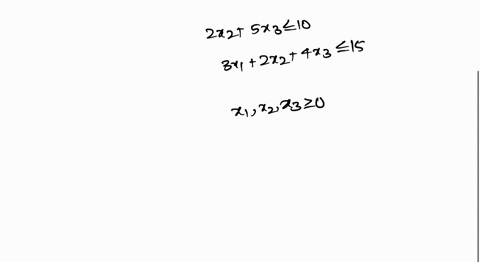 2x₂+ 5x₃≤10
3x₁+2x₂+4x₃≤15
x₁,x₂,x₃≥0